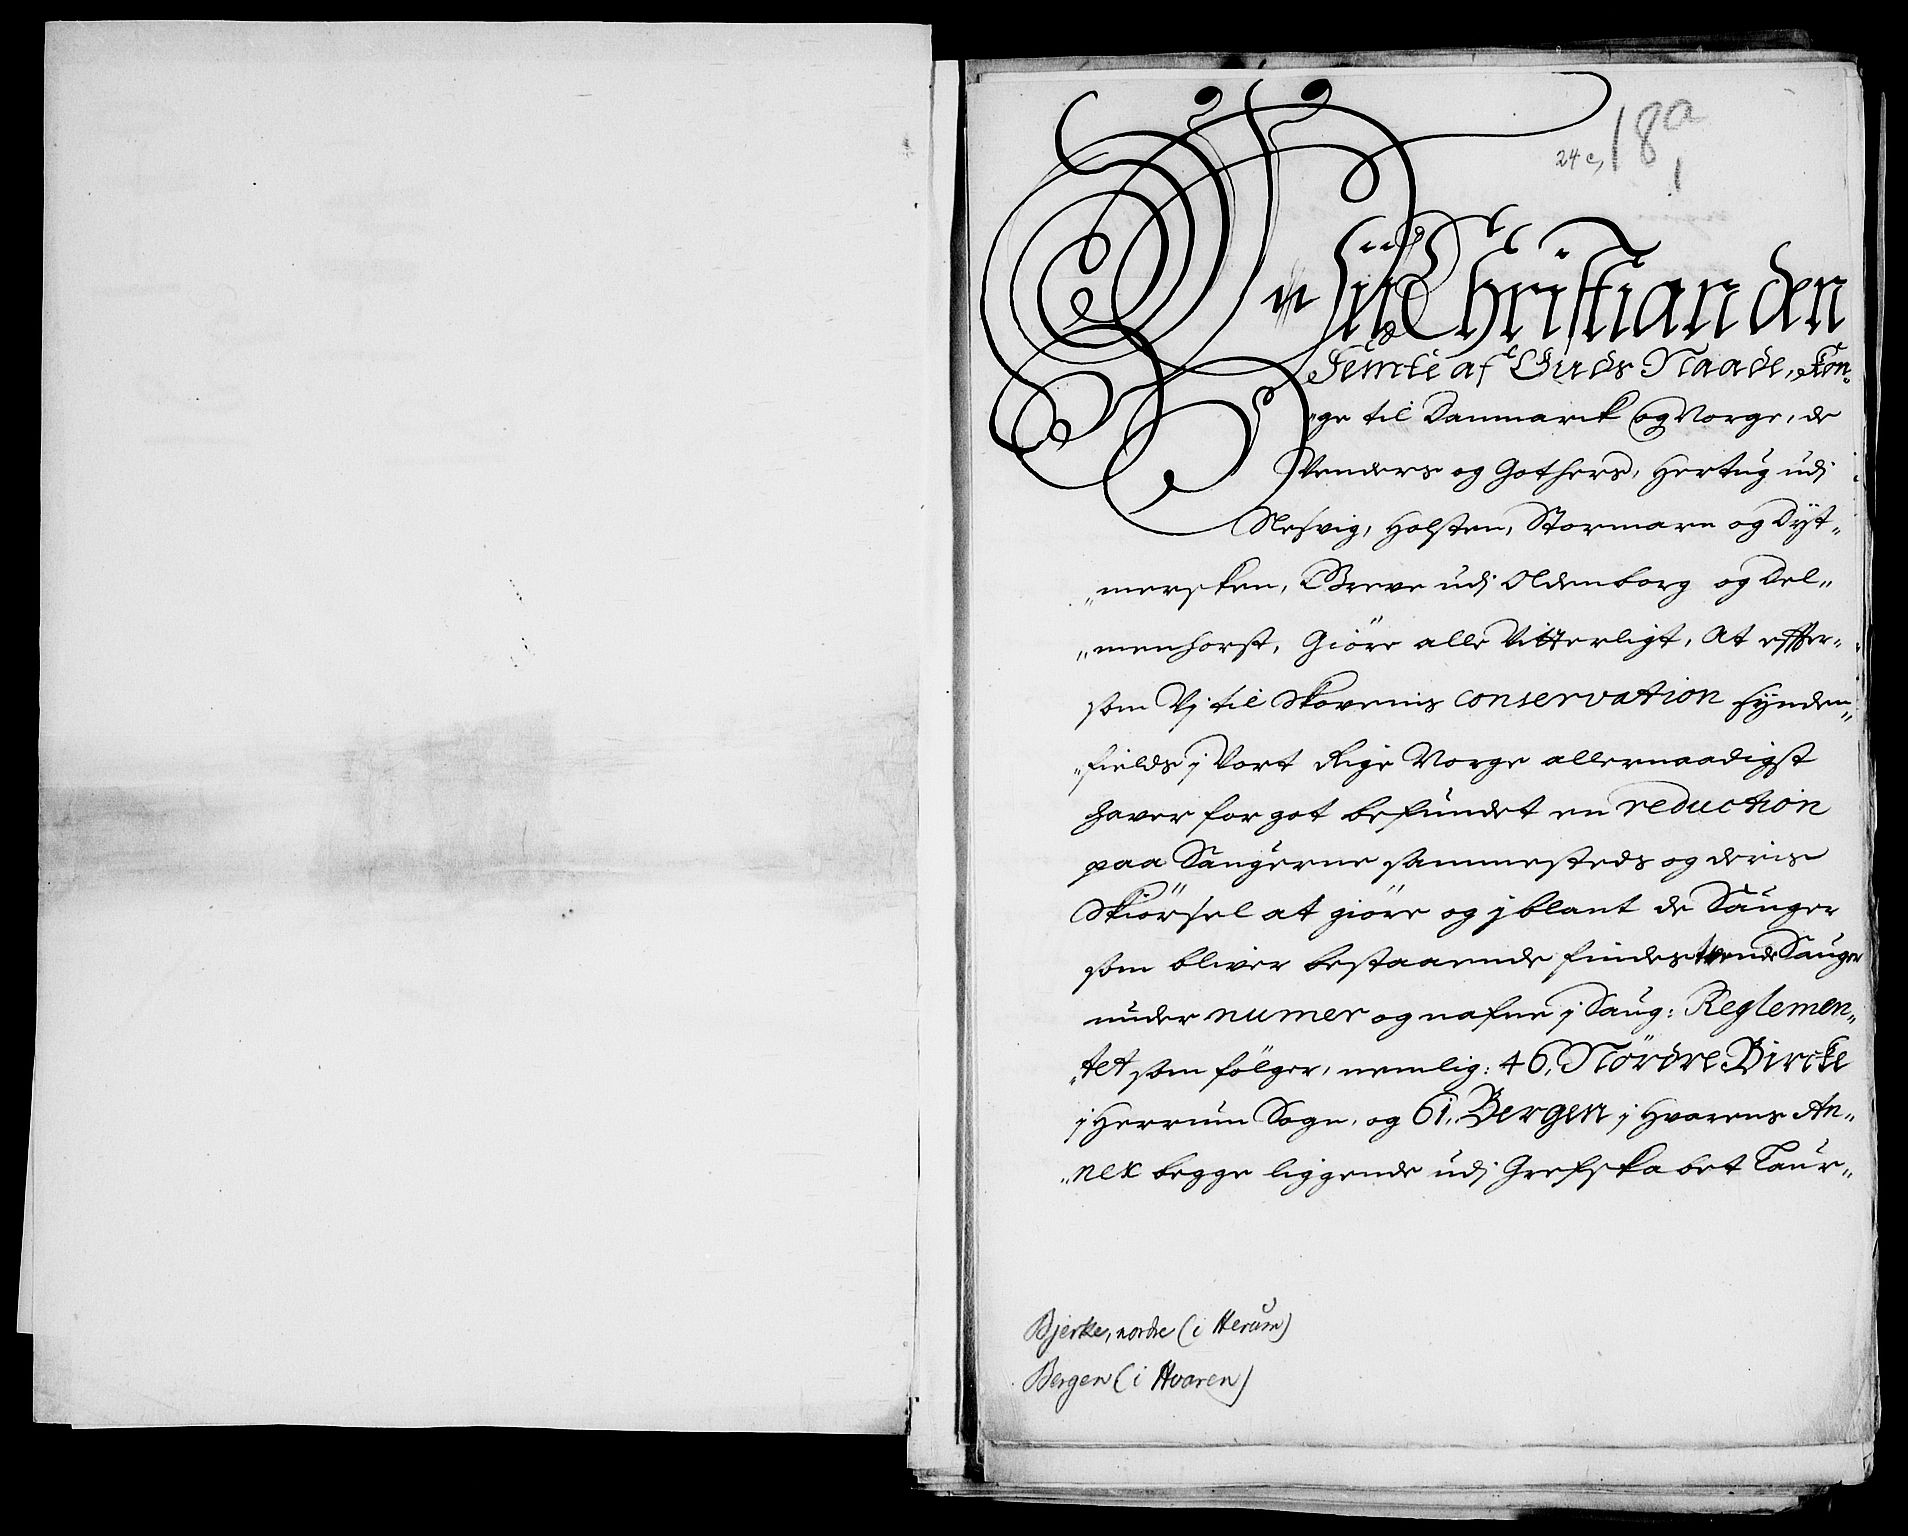 24 c, 18 a
1
Vii Christian den
Femte af Guds Naade, Kon„
„ge til Danmarck og Norge, de
Venders og Gothers, Hertug udj
Slesvig, Holsten, Stormarn og Dyt„
„mersken, Greve udj Oldenborg og Del„
„menhorst, Giöre alle Vitterligt, At effter„
som Vj til Skovenis conservation Synden„
„fields j Vort Rige Norge allernaadigst
haver for got befundet en reduction
paa Saugerne sammesteds og deris
Skiörsel at giöre og jblant de Sauger
som bliver bestaaende findes tvende Sauger
under numer og nafne j Saug: Reglemen„
„tet som fölger, nemlig: 46, Nördre Bircke
j Herrum Sogn, og 61, Bergen j Hvarens An„
„nex begge liggende udj Grefskabet Laur„
Bjerke, nordre (i Herum)
Bergen (i Hvaren)